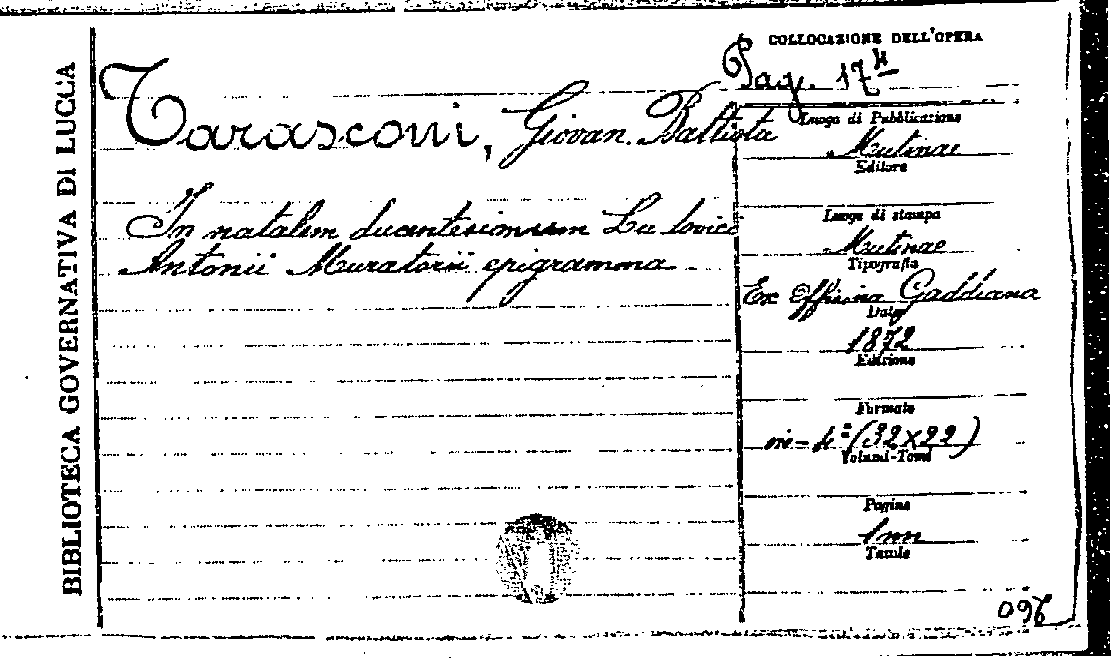 BIBLIOTECA GOVERNATIVA DI LUCCA
COLLOCAZIONE DELL'OPERA
Pag. 17 4
Tarasconi, Giovan. Battista
In natalem ducentesimum Ludovici
Antonii Muratorii epigramma
Luogo di Pubblicazione
Mutinae
Editore
Luogo di stampa
Mutinae
Tipografia
Ex Officina Gaddiana
Data
1872
Edizione
Formato
in-4º (32x22)
Volumi-Tomi
Pagine
1 nn
Tavole